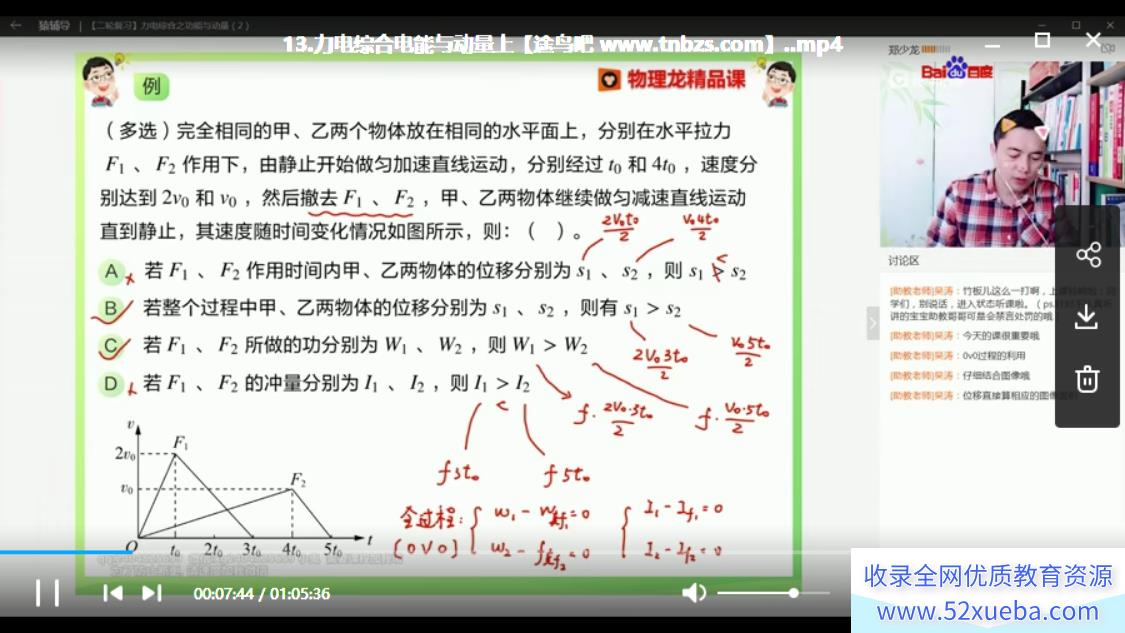 猿辅导 | 【二轮复习】力电综合之功能与动量（2）
13.力电综合电能与动量上【途鸟吧 www.tnbzs.com】..mp4
郑少龙
Bai du 百度
例
物理龙精品课
（多选）完全相同的甲、乙两个物体放在相同的水平面上，分别在水平拉力
F₁ 、 F₂ 作用下，由静止开始做匀加速直线运动，分别经过 t₀ 和 4t₀ ，速度分
别达到 2v₀ 和 v₀ ，然后撤去 F₁ 、 F₂ ，甲、乙两物体继续做匀减速直线运动
直到静止，其速度随时间变化情况如图所示，则：（ ）。
2V₀t₀/2
V₀4t₀/2
A × 若 F₁ 、 F₂ 作用时间内甲、乙两物体的位移分别为 s₁ 、 s₂ ，则 s₁ > s₂
<
B ✓ 若整个过程中甲、乙两物体的位移分别为 s₁ 、 s₂ ，则有 s₁ > s₂
C ✓ 若 F₁ 、 F₂ 所做的功分别为 W₁ 、 W₂ ，则 W₁ > W₂
2V₀3t₀/2
V₀5t₀/2
D × 若 F₁ 、 F₂ 的冲量分别为 I₁ 、 I₂ ，则 I₁ > I₂
<
f·2V₀·3t₀/2
f·V₀·5t₀/2
f3t₀
f5t₀
v
2v₀
v₀
F₁
F₂
O t₀ 2t₀ 3t₀ 4t₀ 5t₀ t
全过程:
[0V0]
W₁ - Wf₁=0
I₁ - If₁=0
I₂ - If₂=0
讨论区
[助教老师]吴涛：竹板儿这么一打啊，
学们，别说话，进入状态听课啦。
讲的宝宝助教哥哥可是会禁言处罚的哦
[助教老师]吴涛：今天的课很重要哦
[助教老师]吴涛：0v0过程的利用
[助教老师]吴涛：仔细结合图像哦
[助教老师]吴涛：位移直接算相应的图像
00:07:44 / 01:05:36
收录全网优质教育资源
www.52xueba.com